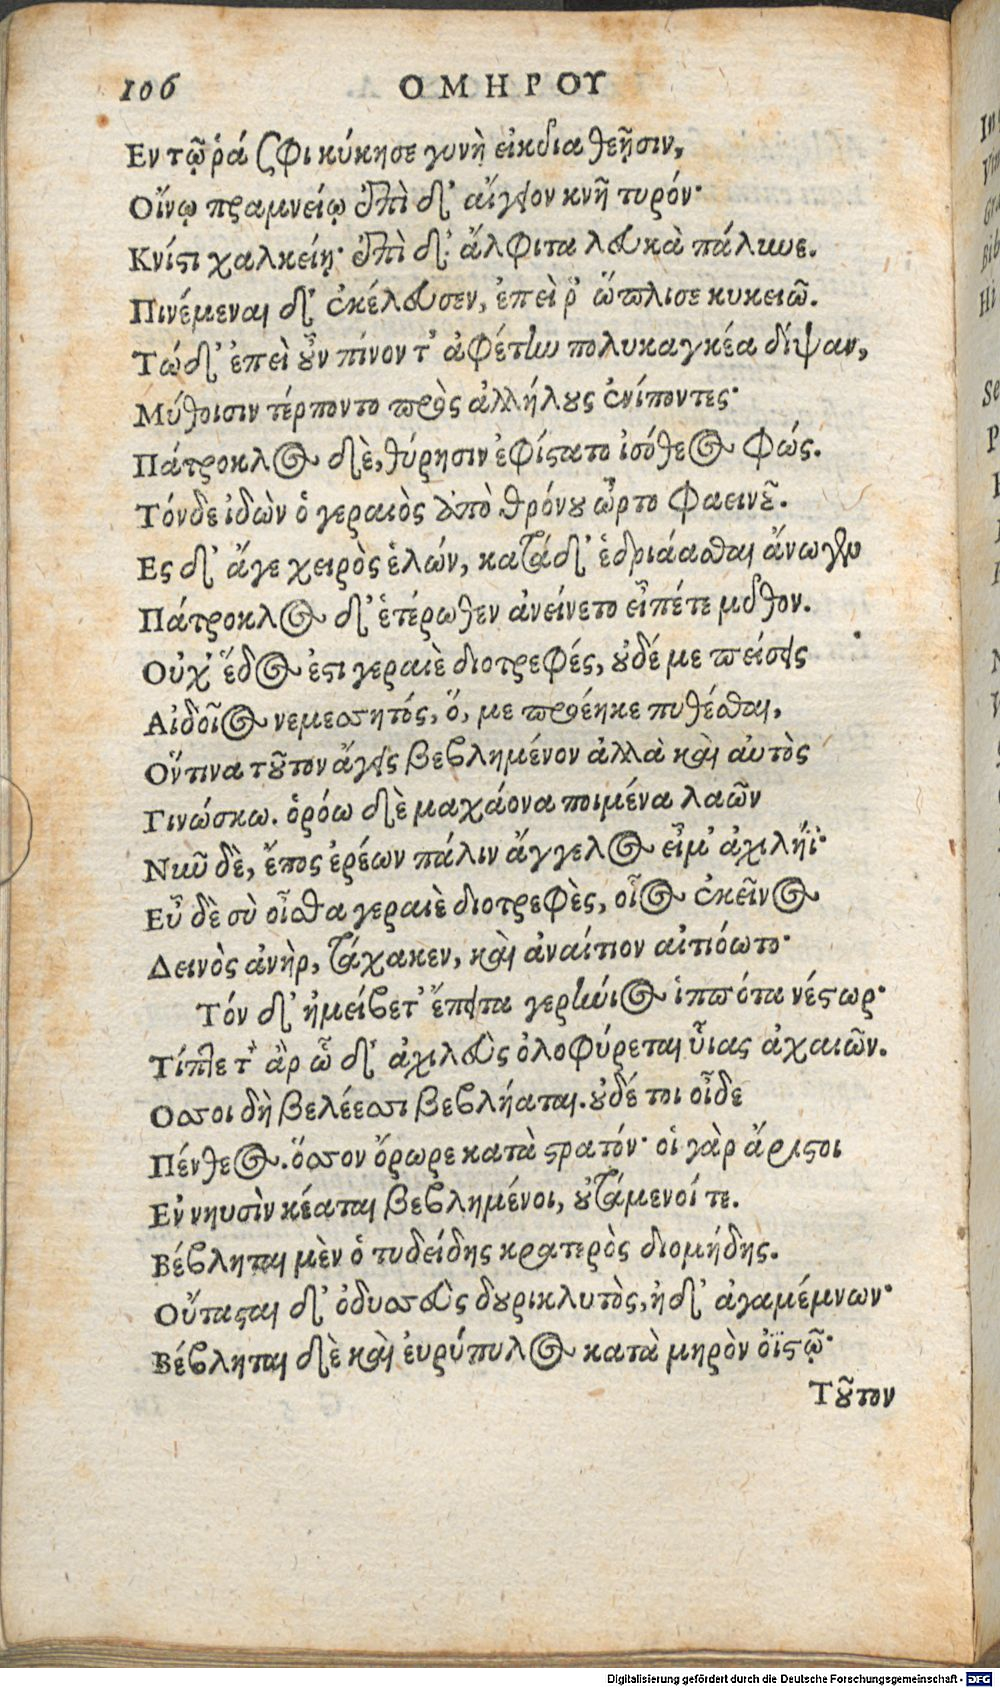 106 ΟΜΗΡΟΥ
Εν τῷ ῥά σφι κύκησε γυνὴ εἰκυῖα θεῇσιν,
Οἴνῳ πραμνείῳ ἐπὶ δ' αἴγειον κνῆ τυρόν·
Κνίστι χαλκείῃ· ἐπὶ δ' ἄλφιτα λευκὰ πάλυνε.
Πινέμεναι δ' ἐκέλευσεν, ἐπεὶ ῥ' ὥπλισε κυκειῶ.
Τώ δ' ἐπεὶ οὖν πίνοντ' ἀφέτην πολυκαγκέα δίψαν,
Μύθοισιν τέρποντο πρὸς ἀλλήλους ἐνίποντες·
Πάτροκλος δὲ, θύρῃσιν ἐφίστατο ἰσόθεος φώς.
Τόνδε ἰδὼν ὁ γεραιὸς ἀπὸ θρόνου ὦρτο φαεινοῦ.
Ες δ' ἄγε χειρὸς ἑλών, κατά δ' ἑδριάασθαι ἄνωγεν
Πάτροκλος δ' ἑτέρωθεν ἀνείνετο εἶπέ τε μῦθον.
Οὐχ' ἕδος ἐστι γεραιὲ διοτρεφές, οὐδέ με πείσεις
Αἰδοῖος νεμεσητός, ὅ, με προέηκε πυθέσθαι,
Οντινα τοῦτον ἄγεις βεβλημένον ἀλλὰ καὶ αὐτὸς
Γινώσκω. ὁρόω δὲ μαχάονα ποιμένα λαῶν
Νῦν δὲ, ἔπος ἐρέων πάλιν ἄγγελος εἶμ' ἀχιλῆϊ·
Εὖ δὲ σὺ οἶσθα γεραιὲ διοτρεφὲς, οἷος ἐκεῖνος
Δεινὸς ἀνὴρ, τάχα κεν, καὶ ἀναίτιον αἰτιόωτο·
Τόν δ' ἠμείβετ' ἔπειτα γερήνιος ἱππότα νέστωρ·
Τίπτε τ' ἂρ ὧ δ' ἀχιλεὺς ὀλοφύρεται υἷας ἀχαιῶν.
Οσσοι δὴ βελέεσσι βεβλήαται. οὐδέ τοι οἶδε
Πένθεος. ὅσσον ὄρωρε κατὰ στρατόν· οἱ γὰρ ἄριστοι
Εν νηυσὶν κέαται βεβλημένοι, οὐτάμενοί τε.
Βέβληται μὲν ὁ τυδείδης κρατερὸς διομήδης.
Οὔτασται δ' ὀδυσσεὺς δουρικλυτὸς, ἠδ' ἀγαμέμνων·
Βέβληται δὲ καὶ ἐυρύπυλος κατὰ μηρὸν ὀϊστῷ·
Τοῦτον
Digitalisierung gefördert durch die Deutsche Forschungsgemeinschaft - DFG